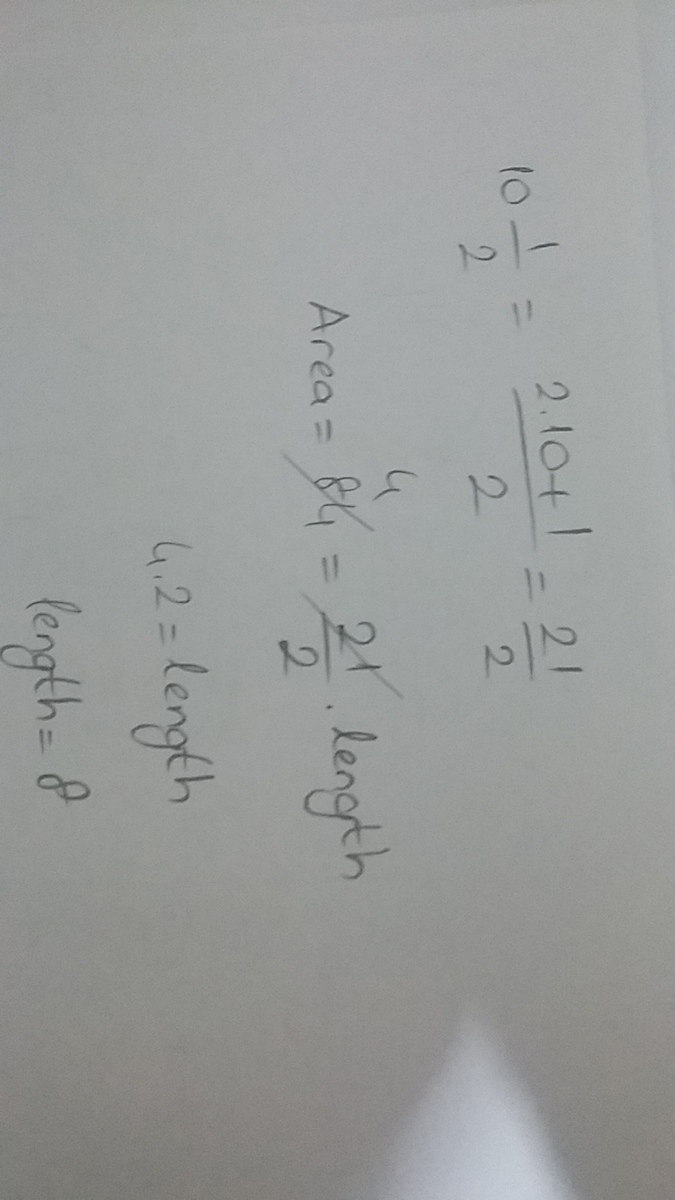 10 1/2 = (2.10+1)/2 = 21/2
4
Area = 84 = 21/2 . length
4.2 = length
length = 8